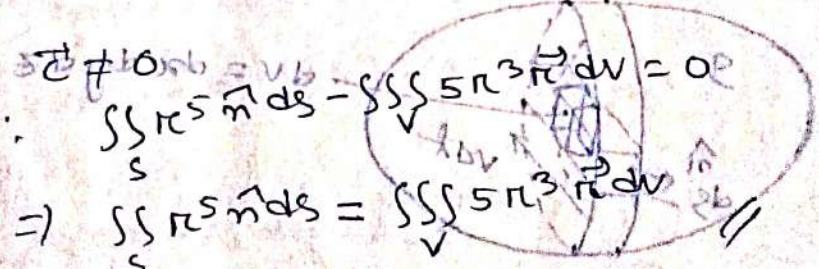 \vec{c} ≠ 0
∴ ∬_S r^5 n̂ ds - ∭_V 5r^3 \vec{r} dv = 0
=) ∬_S r^5 n̂ ds = ∭_V 5r^3 \vec{r} dv //